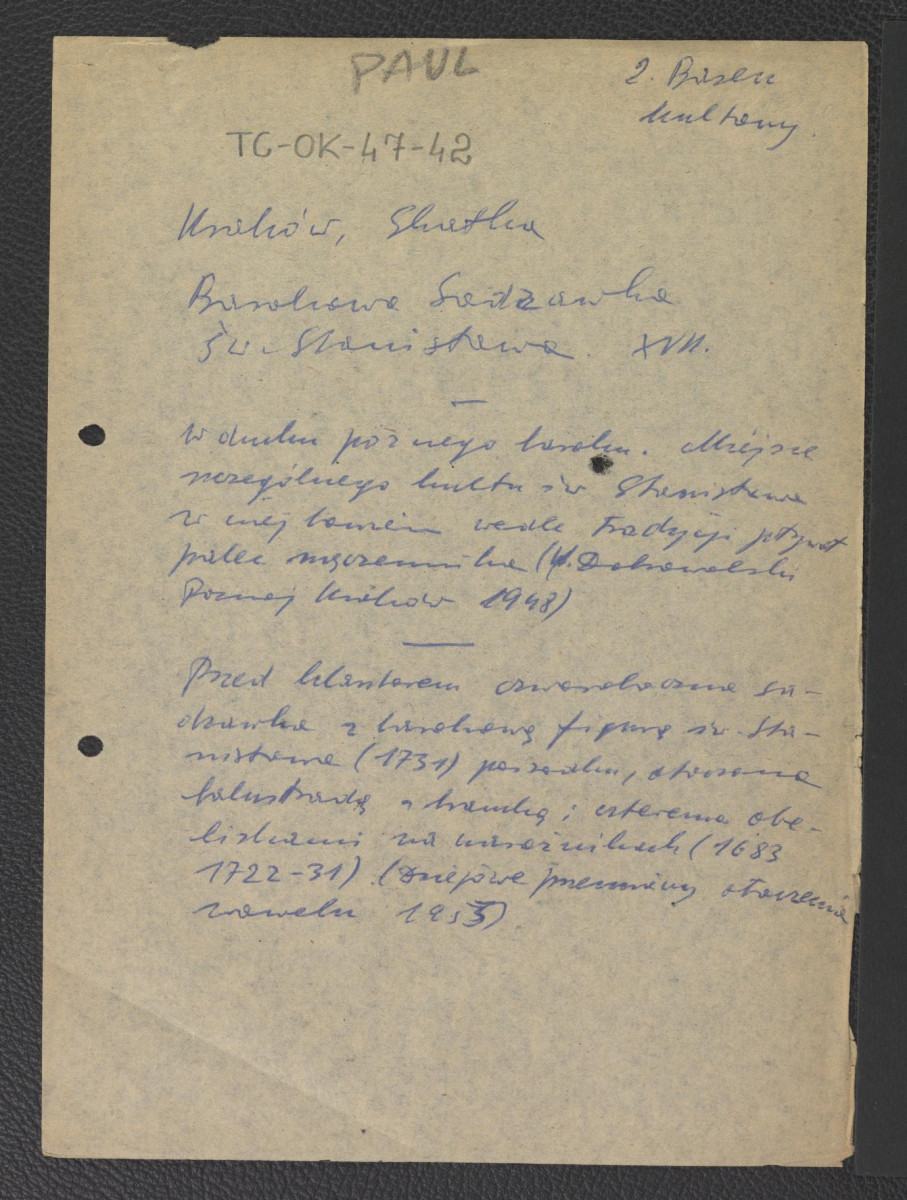 PAUL
2. Basen
kultowy.
TG-OK-47-42
Kraków, Skałka
Barokowa Sadzawka
św. Stanisława. XVII.
W duchu późnego baroku. Miejsce
szczególnego kultu św Stanisława
w niej bowiem wedle Tradycji pływał
palec męczennika (W. Dobrowolski
Poznaj Kraków 1948)
Przed klasztorem czworoboczna sa-
dzawka z barokową figurą św. Sta-
nisława (1731) pośrodku, otoczona
balustradą z bramką i czterema obe-
liskami na narożnikach (1683
1722-31) (Dziejowe przemiany otoczenia
Wawelu 1955)